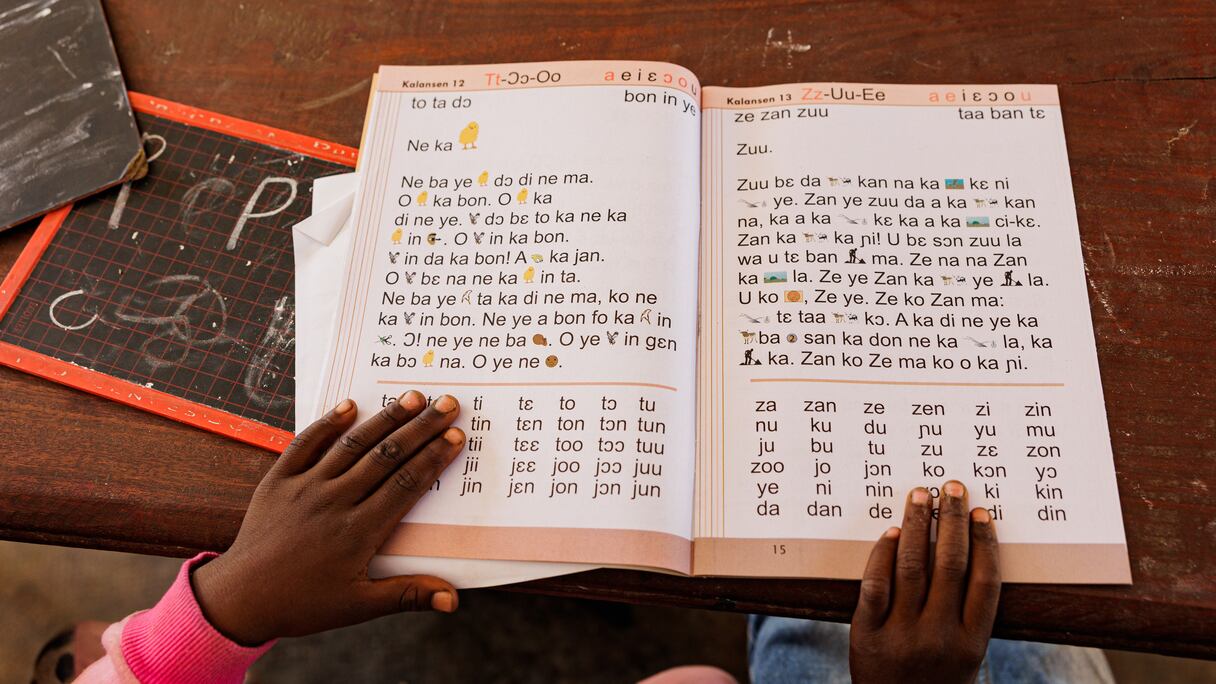 P
C
Kalansen 12 Tt-Ɔɔ-Oo a e i ɛ ɔ o u
to ta dɔ bon in ye
Ne ka
Ne ba ye dɔ di ne ma.
O ka bon. O ka
di ne ye. dɔ bɛ to ka ne ka
in . O in ka bon.
in da ka bon! A ka jan.
O bɛ na ne ka in ta.
Ne ba ye ta ka di ne ma, ko ne
ka in bon. Ne ye a bon fo ka in
. Ɔ! ne ye ne ba . O ye in gɛn
ka bɔ na. O ye ne .
ti tɛ to tɔ tu
tin tɛn ton tɔn tun
tii tɛɛ too tɔɔ tuu
jii jɛɛ joo jɔɔ juu
jin jɛn jon jɔn jun
Kalansen 13 Zz-Uu-Ee a e i ɛ ɔ o u
ze zan zuu taa ban tɛ
Zuu.
Zuu bɛ da kan na ka kɛ ni
ye. Zan ye zuu da a ka kan
na, ka a ka kɛ ka a ka ci-kɛ.
Zan ka ka ɲi! U bɛ sɔn zuu la
wa u tɛ ban ma. Ze na na Zan
ka la. Ze ye Zan ka ye la.
U ko , Ze ye. Ze ko Zan ma:
tɛ taa kɔ. A ka di ne ye ka
ba 2 san ka don ne ka la, ka
ka. Zan ko Ze ma ko o ka ɲi.
za zan ze zen zi zin
nu ku du ɲu yu mu
ju bu tu zu zɛ zon
zoo jo jɔn ko kɔn yɔ
ye ni nin ki kin
da dan de di din
15